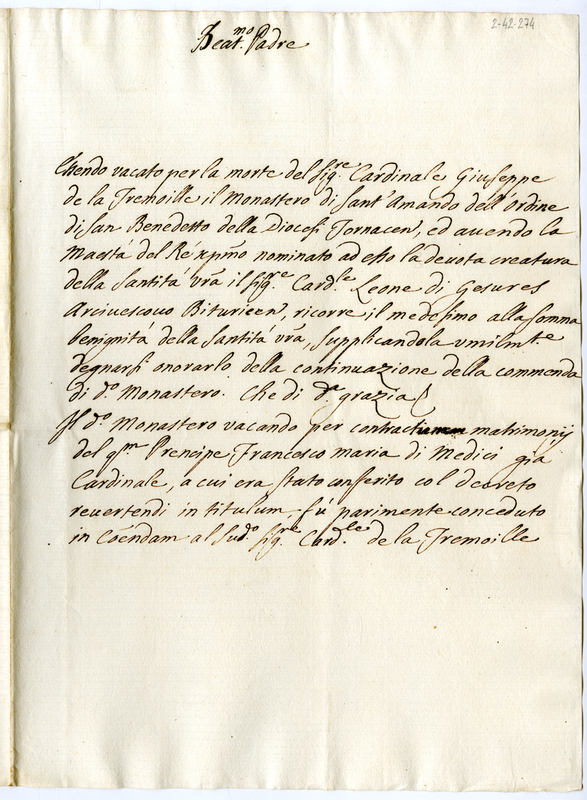 2-42-274
Beat.mo Padre
Essendo vacato per la morte del Sig.re Cardinale Giuseppe
de la Tremoille il Monastero di Sant'Amando dell'Ordine
di San Benedetto della Diocesi Tornacen, ed avendo la
Maestà del Rè xpmo nominato ad esso la devota creatura
della Santità vrã il Sig.re Card.le Leone di Gesures
Arcivescovo Bituricen, ricorre il medesimo alla somma
benignità della Santità vrã, supplicandola umilmte
degnarsi onorarlo della continuazione della commenda
di d.o Monastero. Che di d.a grazia
Il d.o Monastero vacando per contractum matrimonij
del qm Prencipe Francesco Maria di Medici già
Cardinale, a cui era stato conferito col decreto
revertendi in titulum, fù parimente conceduto
in Coẽndam al sud.o Sig.re Card.le de la Tremoille